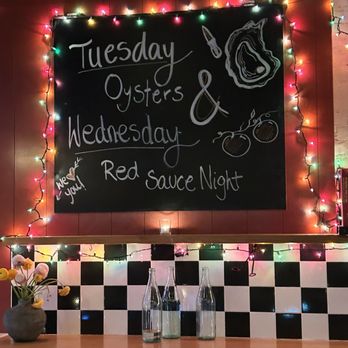 Tuesday
Oysters
&
Wednesday
Red Sauce Night
We ♥
you!